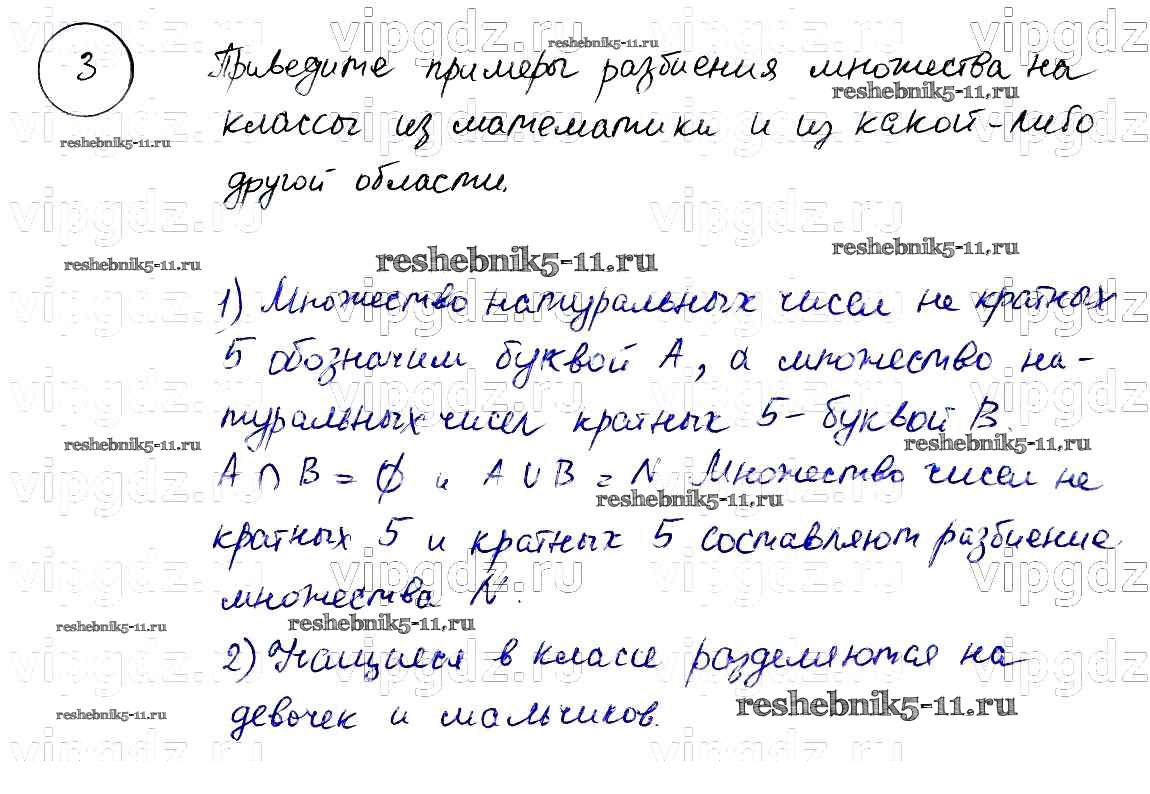 3
Приведите примеры разбиения множества на
классы из математики и из какой-либо
другой области.
1) Множество натуральных чисел не кратных
5 обозначим буквой A, а множество на-
туральных чисел кратных 5 - буквой B.
A ∩ B = ∅ и A ∪ B = N. Множество чисел не
кратных 5 и кратных 5 составляют разбиение
множества N.
2) Учащиеся в классе разделяются на
девочек и мальчиков.
vipgdz.ru
reshebnik5-11.ru